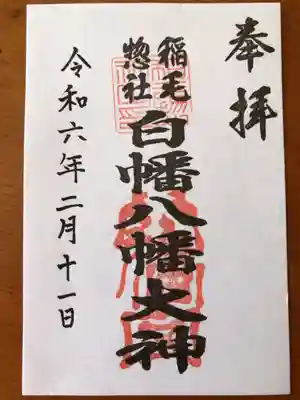 奉拝
稲毛
惣社
白幡八幡大神
令和六年二月十一日